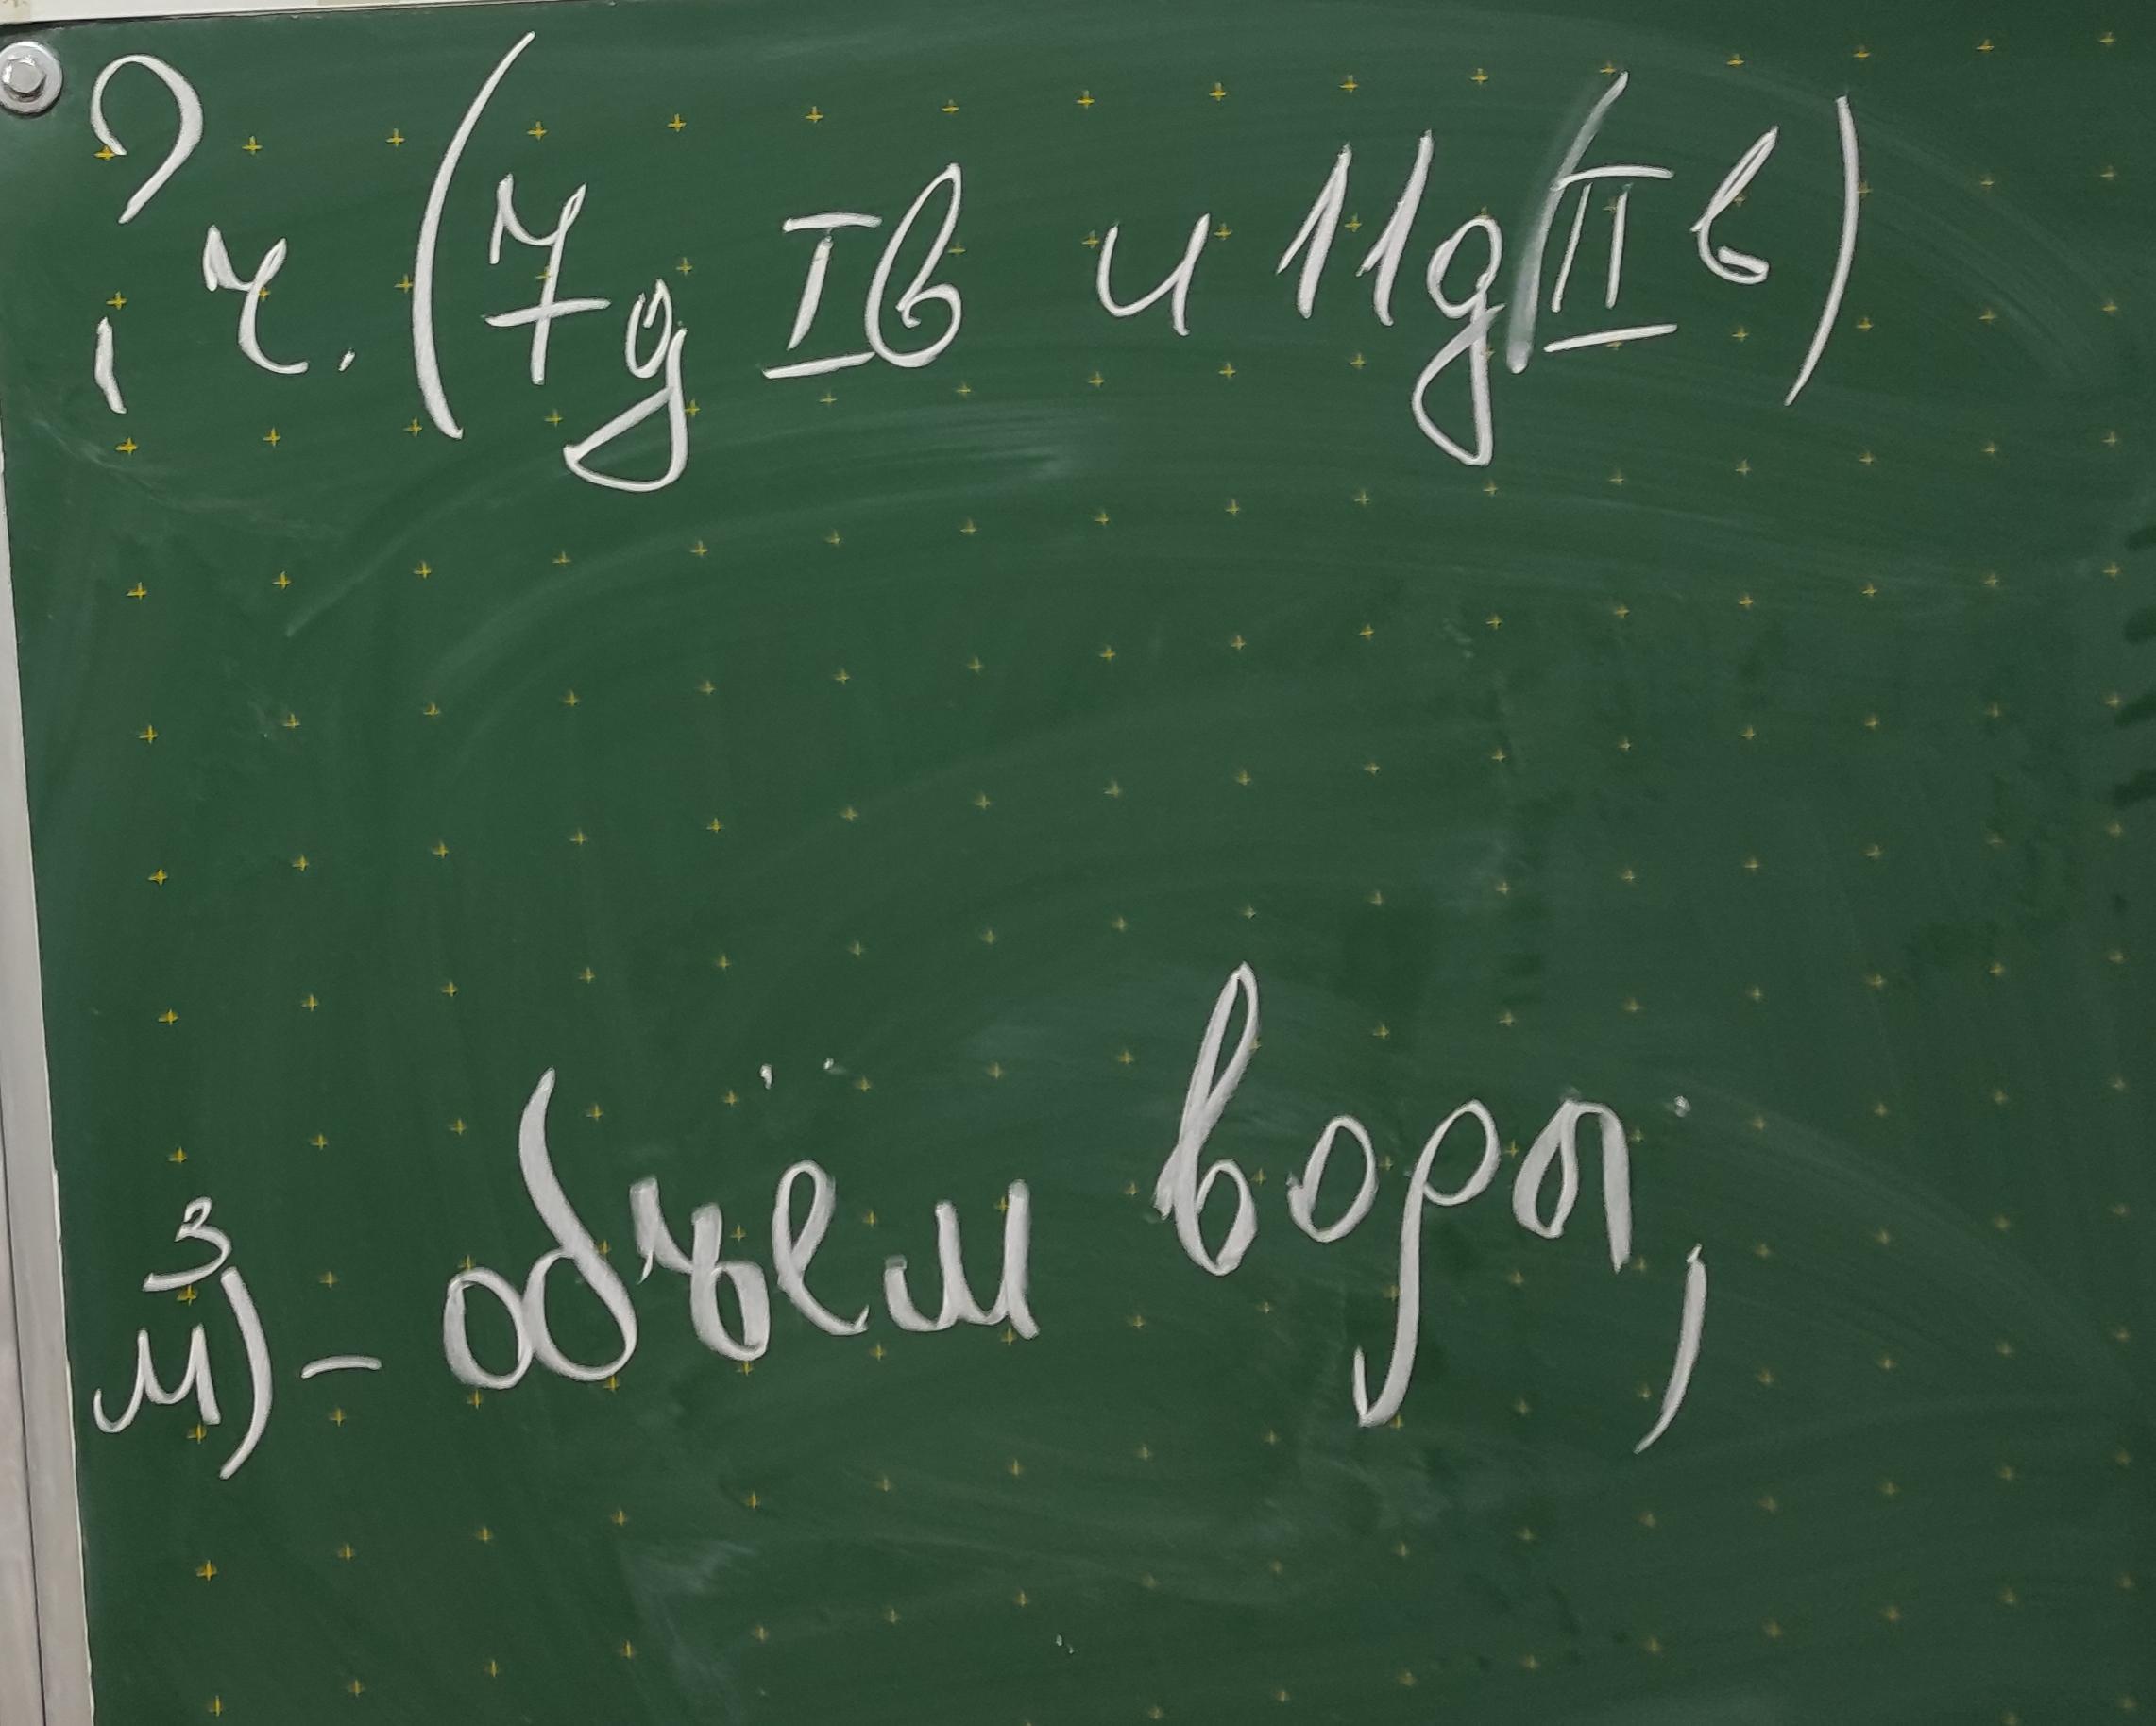 ? ч. (7д Iв и 11д IIв)
м³) - объём воды,